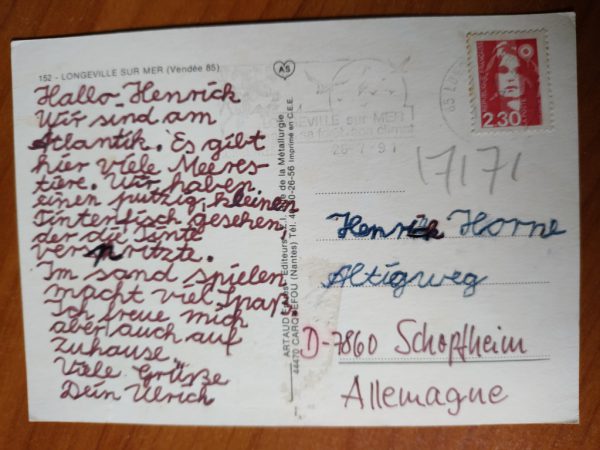 152 - LONGEVILLE SUR MER (Vendée 85)
Hallo Henrich
Wir sind am
Atlantik. Es gibt
hier viele Meeres-
tiere. Wir haben
einen putzig, kleinen
Tintenfisch gesehen,
der die Tinte
verspritzte.
Im sand spielen
macht viel Spaß
Ich freue mich
aber auch auf
zuhause
Viele Grüße
Dein Ulrich
AS
de la Métallurgie
44470 CARQUEFOU (Nantes) Tél. 40-30-26-56 Imprimé en C.E.E.
LONGEVILLE sur MER
2,30
17171
Henrich Horne
Altigweg
D-7860 Schopfheim
Allemagne